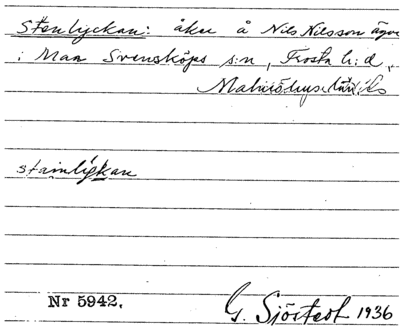 Stenlyckan: åker å Nils Nilsson ägor
i Maa Svensköps s:n, Frosta h:d,
Malmöhus län
stainlýkan
Nr 5942.
G. Sjöstedt 1936